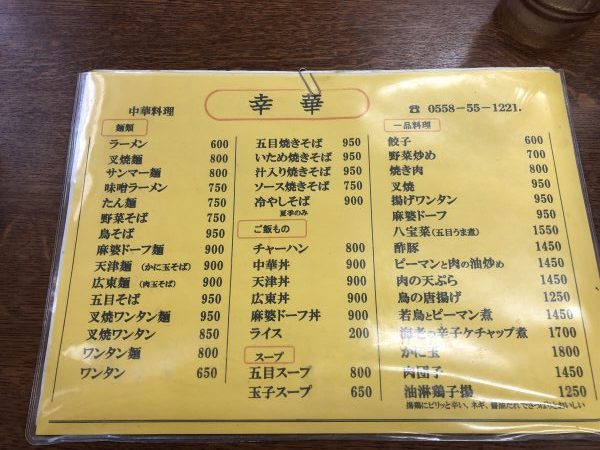 中華料理
幸華
☎ 0558-55-1221.
麺類
ラーメン 600
叉焼麺 800
サンマー麺 800
味噌ラーメン 750
たん麺 750
野菜そば 750
鳥そば 950
麻婆ドーフ麺 900
天津麺 (かに玉そば) 900
広東麺 (肉玉そば) 900
五目そば 950
叉焼ワンタン麺 950
叉焼ワンタン 850
ワンタン麺 800
ワンタン 650
五目焼きそば 950
いため焼きそば 950
汁入り焼きそば 750
ソース焼きそば 750
冷やしそば 900
夏季のみ
ご飯もの
チャーハン 800
中華丼 900
天津丼 900
広東丼 900
麻婆ドーフ丼 900
ライス 200
スープ
五目スープ 800
玉子スープ 650
一品料理
餃子 600
野菜炒め 700
焼き肉 800
叉焼 950
揚げワンタン 950
麻婆ドーフ 950
八宝菜 (五目うま煮) 1550
酢豚 1450
ピーマンと肉の油炒め 1450
肉の天ぷら 1450
鳥の唐揚げ 1250
若鳥とピーマン煮 1450
海老の辛子ケチャップ煮 1700
かに玉 1800
肉団子 1450
油淋鶏子揚 1250
揚鶏にピリッと辛い、ネギ、醤油だれでさっぱりとおいしい